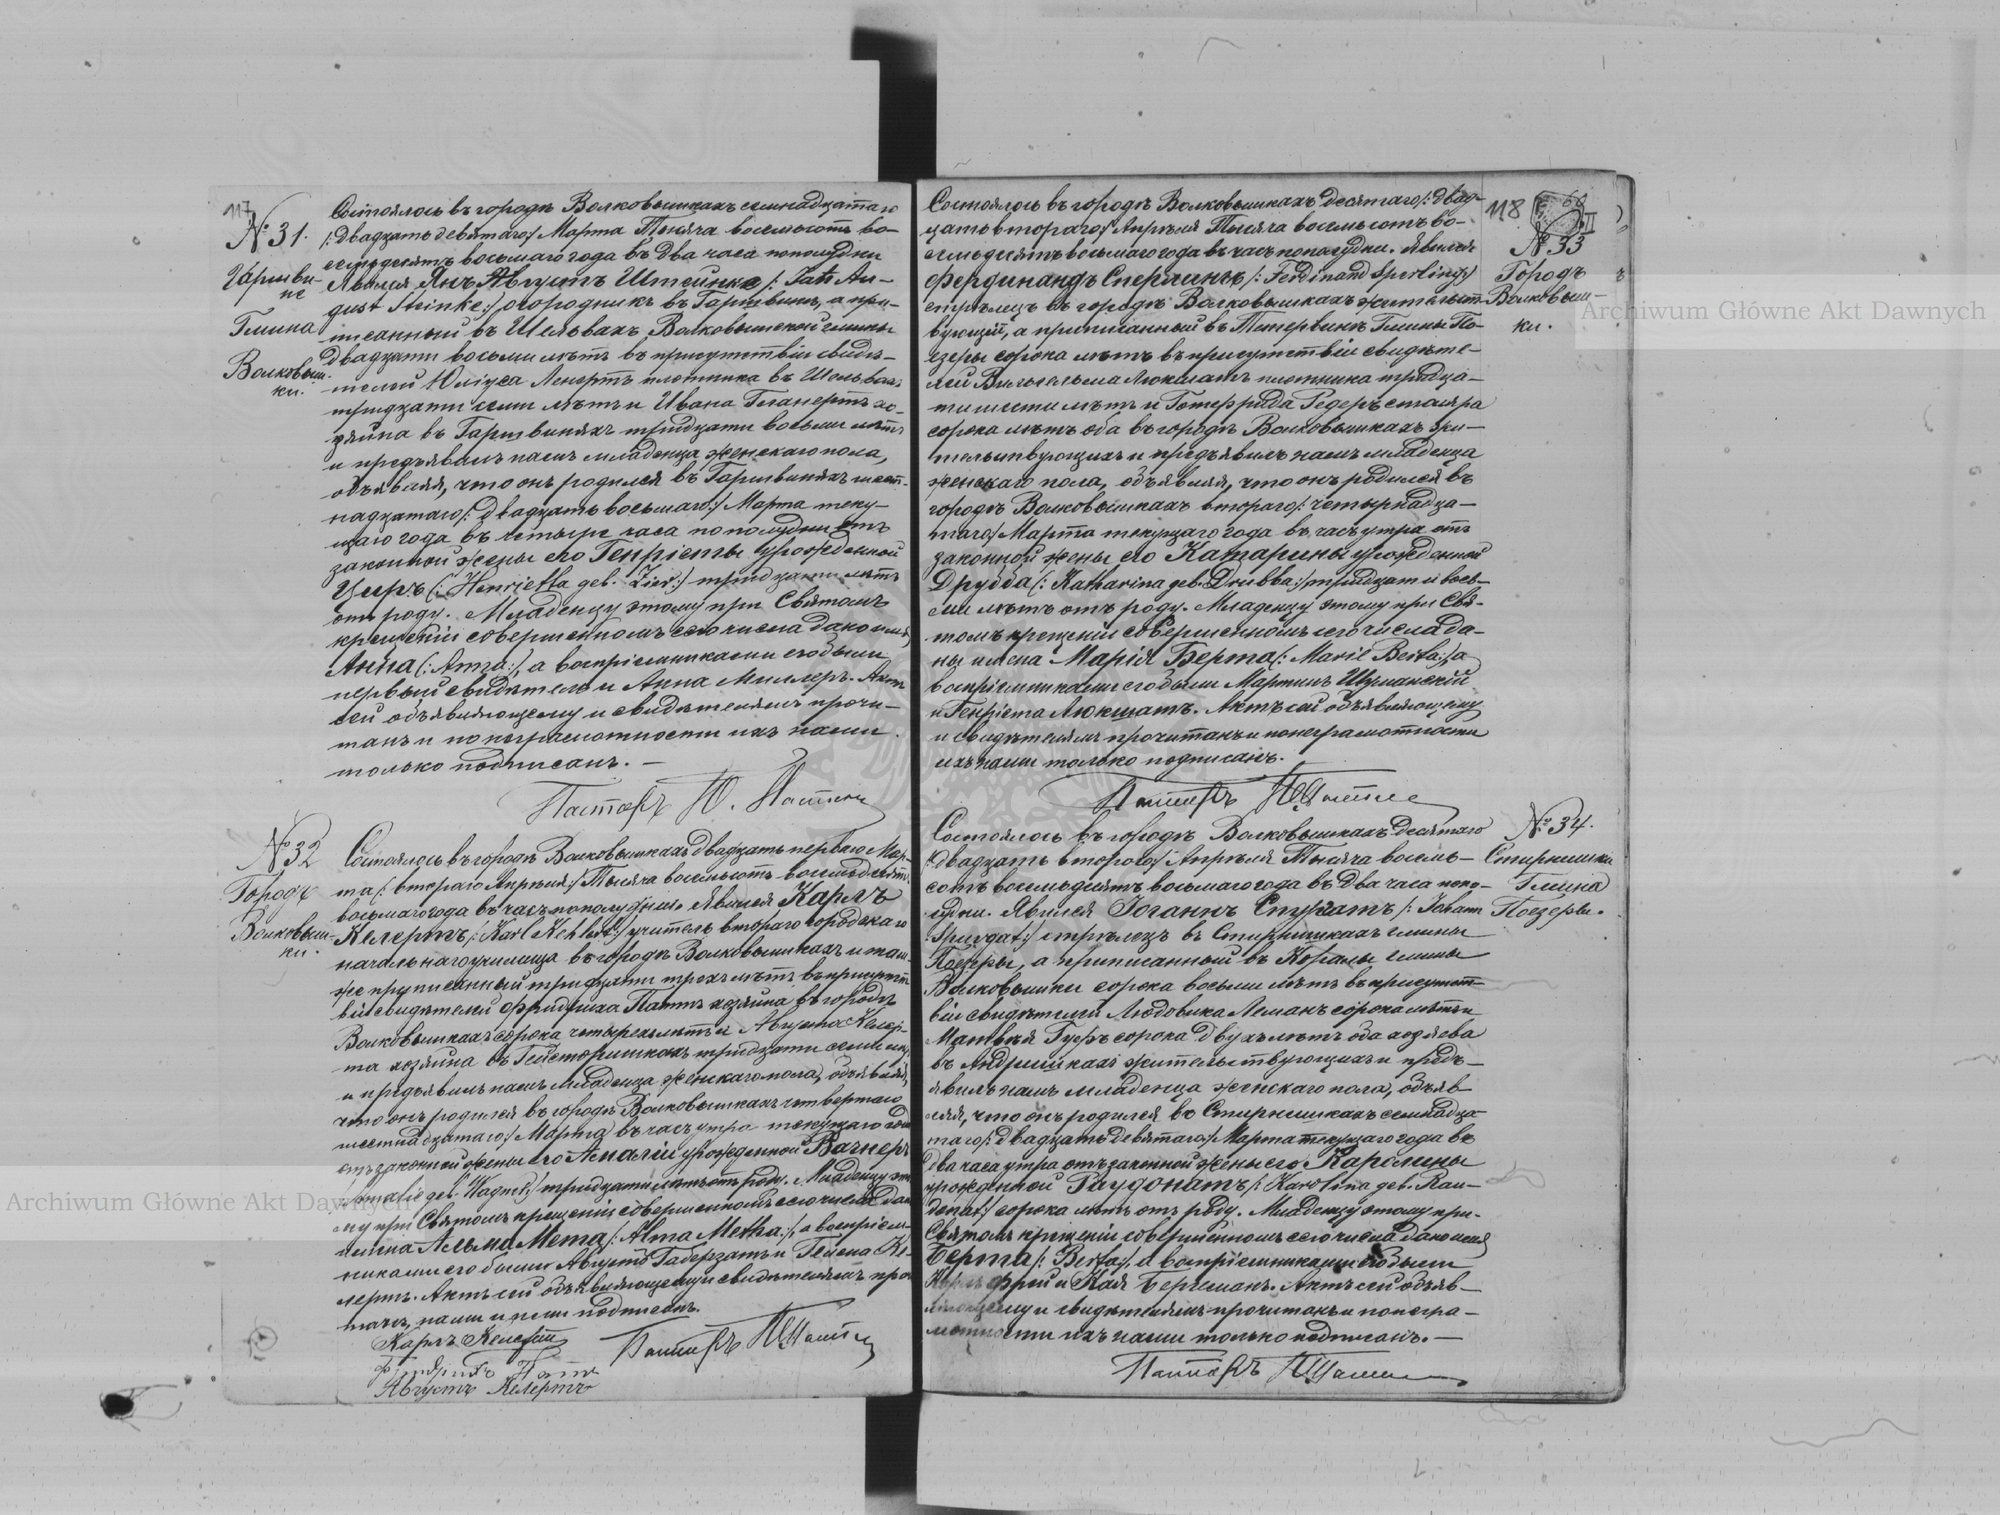 117
№ 31.
Гаршви-
не
Гмина
Волковыш-
ки.
Состоялось въ городѣ Волковышкахъ семнадцатаго
/: двадцать девятаго:/ Марта Тысяча восемьсотъ во-
семьдесятъ восьмаго года въ два часа пополудни
Явился Янъ Августъ Штейнке /: Jan Au-
gust Steinke:/ огородникъ въ Гаршвине, а при-
писанный въ Шельвахъ, Волковышской гмины
двадцати восьми лѣтъ въ присутствіи свидѣ-
телей Юліуса Ленертъ плотника въ Шельвахъ
тридцати семи лѣтъ и Ивана Гланертъ хо-
зяина въ Гаршвиняхъ тридцати восьми лѣтъ
и предъявилъ намъ младенца женскаго пола,
объявляя, что онъ родился въ Гаршвиняхъ шест-
надцатаго /: двадцать восьмаго:/ Марта теку-
щаго года въ четыре часа пополудни отъ
законной жены его Генріеты урожденной
Циръ (: Henrietta geb. Zier:) тридцати лѣтъ
отъ роду. Младенцу этому при Святомъ
крещеніи совершенномъ сего числа дано имя
Анна (: Anna:), а воспріемниками его были
первый свидѣтель и Анна Миллеръ. Актъ
сей объявляющему и свидѣтелямъ прочи-
танъ и по неграмотности ихъ нами
только подписанъ. —
Пасторъ Ю.
№ 32
Городъ
Волковыш-
ки.
Состоялось въ городѣ Волковышкахъ двадцать перваго Мар-
та /: втораго Апрѣля:/ Тысяча восемьсотъ восемьдесятъ
восьмаго года въ часъ пополудни. Явился Карлъ
Келертъ /: Karl Kehlert:/ учитель втораго городскаго
начальнаго училища въ городѣ Волковышкахъ и там-
же приписанный тридцати трехъ лѣтъ въ присутст-
віи свидѣтелей Фридриха Паттъ хозяина въ городѣ
Волковышкахъ сорока четырехъ лѣтъ и Августа Келер-
та хозяина въ тридцати семи лѣтъ
и предъявилъ намъ младенца женскаго пола, объявляя,
что онъ родился въ городѣ Волковышкахъ четвертаго
шестнадцатаго:/ Марта въ часъ утра текущаго года
отъ законной жены его Амаліи урожденной Вагнеръ
/: Amalie geb. Wagner:/ тридцати лѣтъ отъ роду. Младенцу это-
му при Святомъ крещеніи совершенномъ сего числа даны
имена Альма Мета /: Alma Metha:/, а воспріем-
никами его были Августъ и Гелена Ке-
лертъ. Актъ сей объявляющему и свидѣтелямъ про-
танъ, нами и ими подписанъ.
Карлъ Келертъ
Фридрихъ Паттъ
Августъ Келертъ
Пасторъ
118
№ 33
Городъ
Волковыш-
ки.
Состоялось въ городѣ Волковышкахъ десятаго /: двад-
цать втораго:/ Апрѣля Тысяча восемьсотъ во-
семьдесятъ восьмаго года въ часъ пополудни. Явился
Фердинандъ Сперлингъ /: Ferdinand Sperling:/
стрѣлецъ въ городѣ Волковышкахъ жительст-
вующій, а приписанный въ Гмины По-
езеры сорока лѣтъ въ присутствіи свидѣте-
лей Вильгельма Люкшатъ плотника тридца-
ти шести лѣтъ и Готфрида Редеръ столяра
сорока лѣтъ оба въ городѣ Волковышкахъ жи-
тельствующихъ и предъявилъ намъ младенца
женскаго пола, объявляя, что онъ родился въ
городѣ Волковышкахъ втораго /: четырнадца-
таго:/ Марта текущаго года въ часъ утра отъ
законной жены его Катарины урожденной
Друбба (: Katharina geb. Drubba:) тридцати вось-
ми лѣтъ отъ роду. Младенцу этому при Свя-
томъ крещеніи совершенномъ сего числа да-
ны имена Марія Берта (: Marie Berta:), а
воспріемниками его были Мартинъ Шуманскій
и Генріета Люкшатъ. Актъ сей объявляющему
и свидѣтелямъ прочитанъ и по неграмотности
ихъ нами только подписанъ.
Пасторъ
№ 34.
Стирнишки
Гмина
Поезеры.
Состоялось въ городѣ Волковышкахъ десятаго
/: двадцать втораго:/ Апрѣля Тысяча восемь-
сотъ восемьдесятъ восьмаго года въ два часа попо-
лудни. Явился Іоганнъ Спургатъ /: Johann
Spurgat:/ стрѣлецъ въ Стирнишкахъ гмины
Поезеры, а приписанный въ гмины
Волковышки сорока восьми лѣтъ въ присутст-
віи свидѣтелей Людовика Леманъ сорока лѣтъ и
Матвѣя Гуфъ сорока двухъ лѣтъ оба хозяева
въ жительствующихъ и предъ-
явилъ намъ младенца женскаго пола, объяв-
ляя, что онъ родился въ Стирнишкахъ семнадца-
таго /: двадцать девятаго:/ Марта текущаго года въ
два часа утра отъ законной жены его Каролины
урожденной Раудонатъ /: Karolina geb. Rau-
donat:/ сорока лѣтъ отъ роду. Младенцу этому при
Святомъ крещеніи совершенномъ сего числа дано имя
Берта /: Berta:/, а воспріемниками его были
Карлъ Фрей и Бергманъ. Актъ сей объяв-
ляющему и свидѣтелямъ прочитанъ и по негра-
мотности ихъ нами только подписанъ. —
Пасторъ
Archiwum Główne Akt Dawnych
Archiwum Główne Akt Dawnych